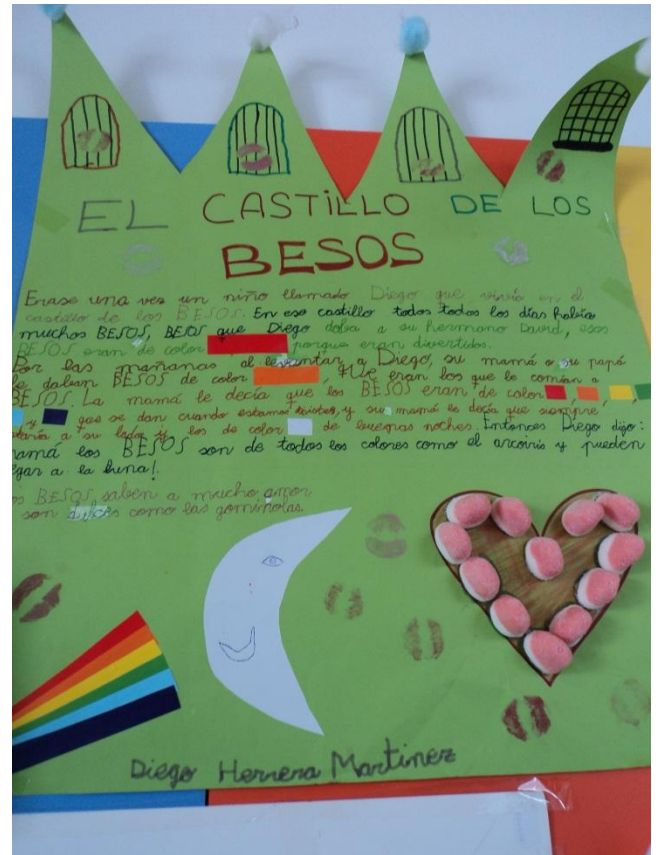 EL CASTILLO DE LOS
BESOS
Erase una vez un niño llamado Diego que vivía en el
castillo de los BESOS. En ese castillo todos todos los días había
muchos BESOS, BESOS que Diego daba a su hermano David, esos
BESOS eran de color porque eran divertidos.
Por las mañanas al levantar a Diego, su mamá o su papá
le daban BESOS de color , que eran los que le comían a
BESOS. La mamá le decía que los BESOS eran de color , , ,
y que se dan cuando estamos tristes, y su mamá le decía que siempre
estaría a su lado y los de color de buenas noches. Entonces Diego dijo:
mamá los BESOS son de todos los colores como el arcoiris y pueden
llegar a la luna!
BESOS saben a mucho amor
son dulces como las gominolas.
Diego Herrera Martinez